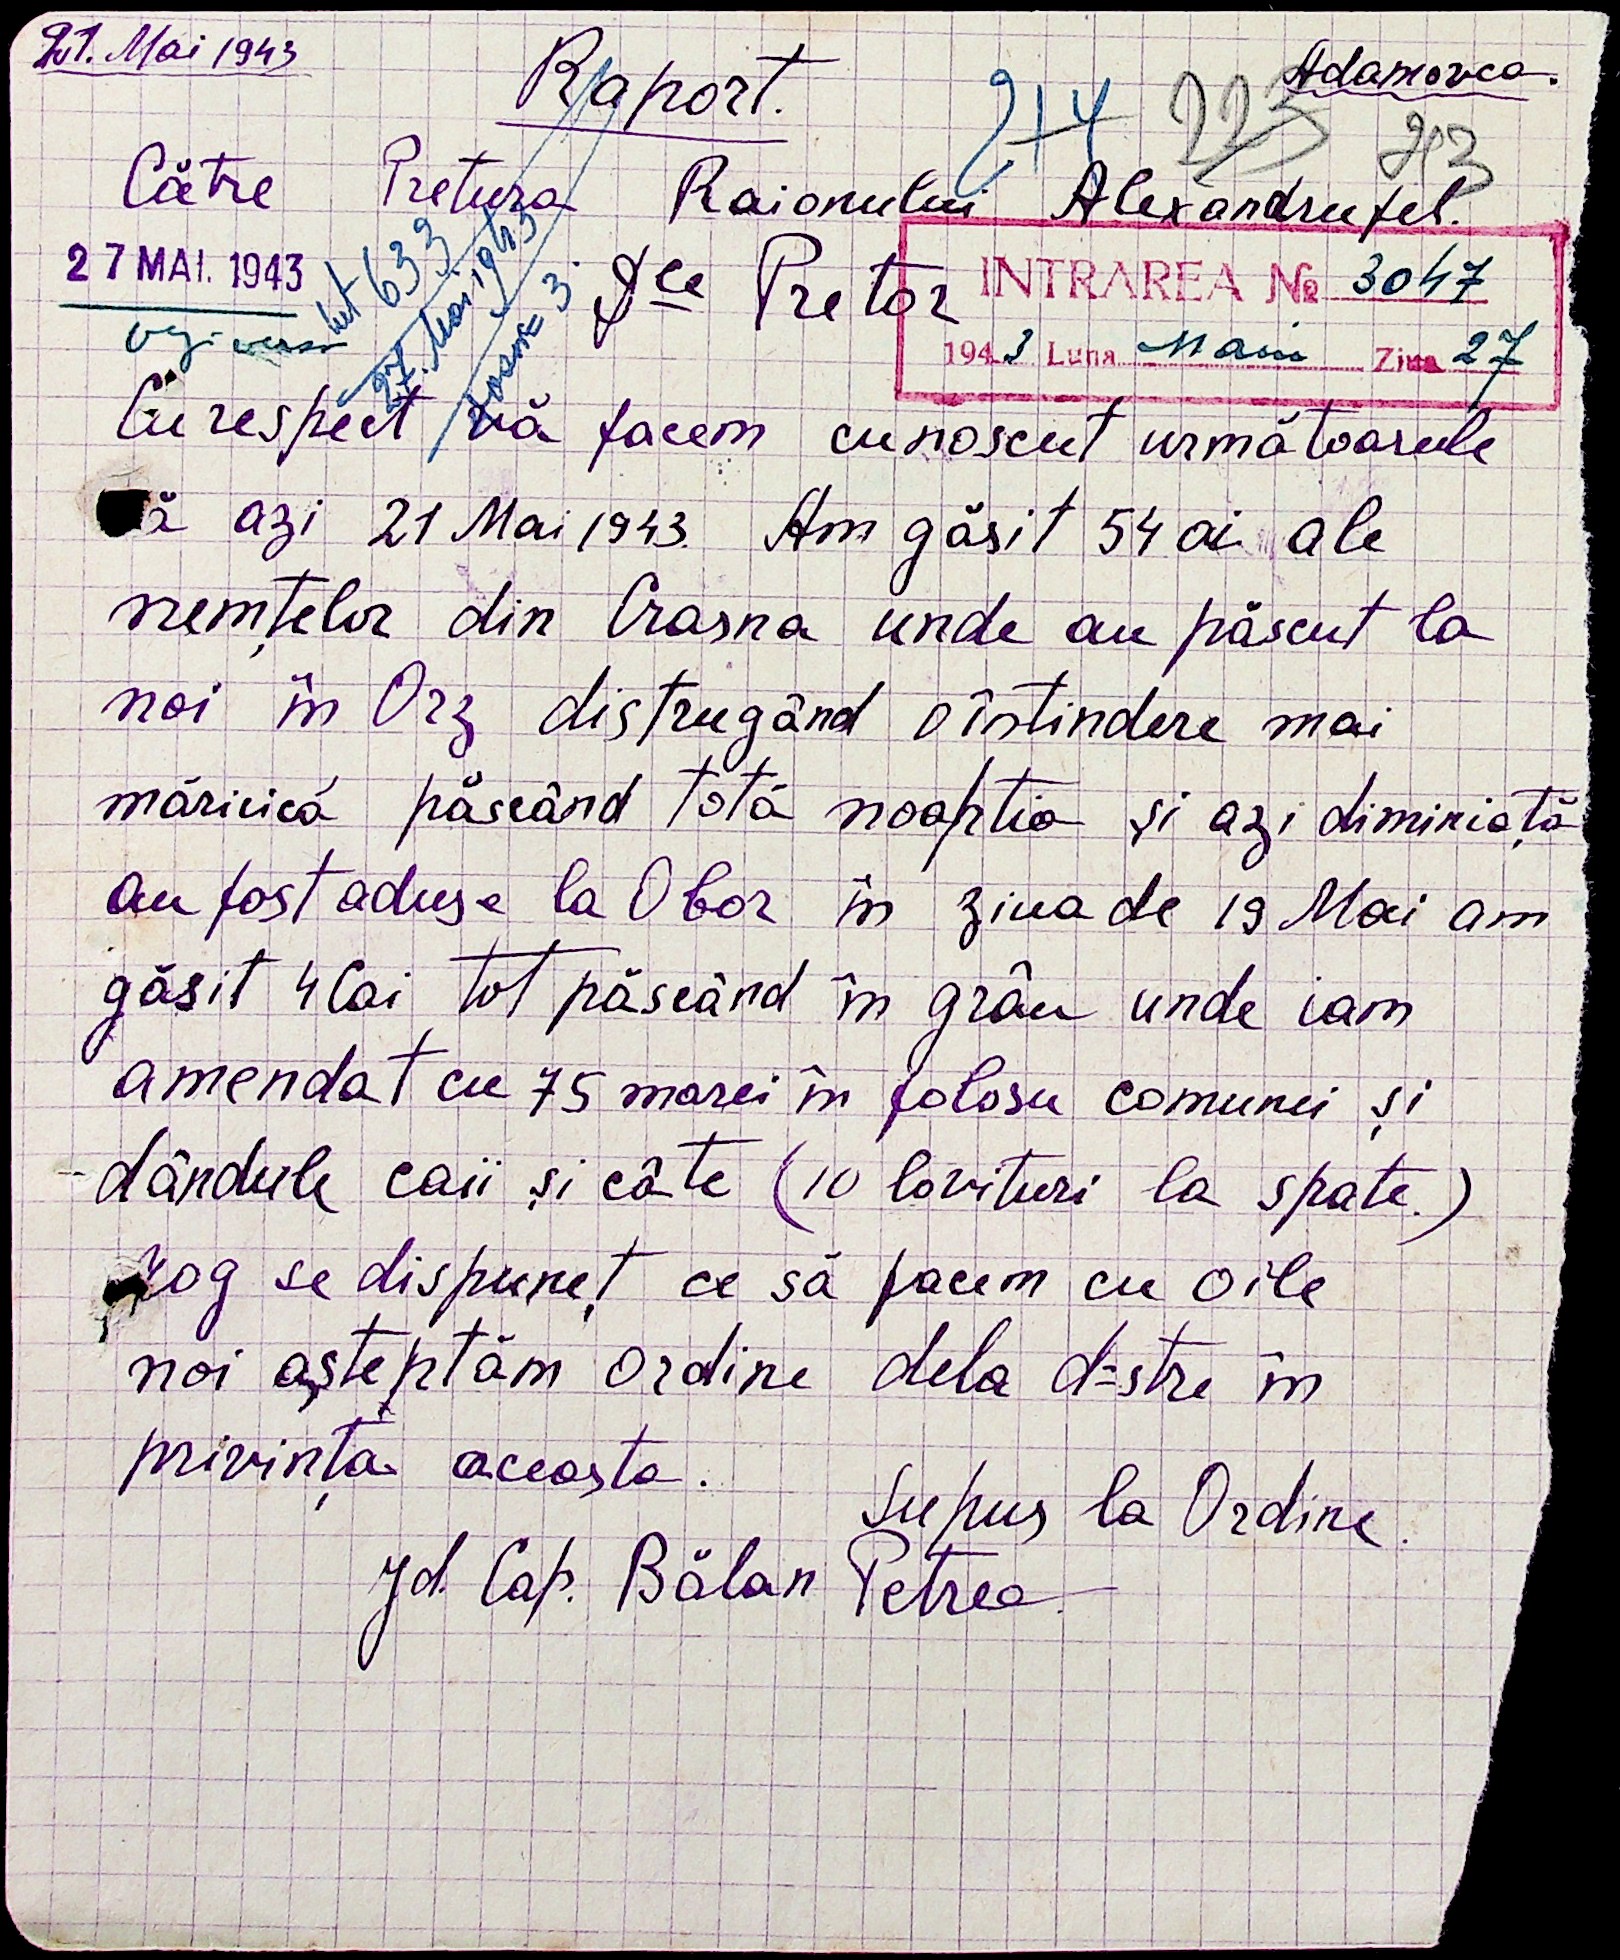 21. Mai 1943
Adamovca.
Raport.
214 223 213
Către Pretura Raionului Alexandrufel.
27 MAI. 1943
INTRAREA № 3047
1943 Luna Maiu Ziua 27
Dle Pretor
vezi verso
633
27. Mai 1943
3
Cu respect vă facem cunoscut următoarele
că azi 21 Mai 1943. Am găsit 54 oi ale
nemțelor din Crasna unde au păscut la
noi în Orz distrugând o întindere mai
măricică păscând totă noaptia și azi diminiață
au fost aduse la Obor în ziua de 19 Mai am
găsit 4 Cai tot păscând în grâu unde iam
amendat cu 75 marci în folosu comunei și
dândule caii și câte (10 lovituri la spate.)
Rog se dispuneț ce să facem cu oile
noi așteptăm ordine dela d=stre în
privința aceasta.
Supus la Ordine.
Jd. Cap. Bălan Petrea